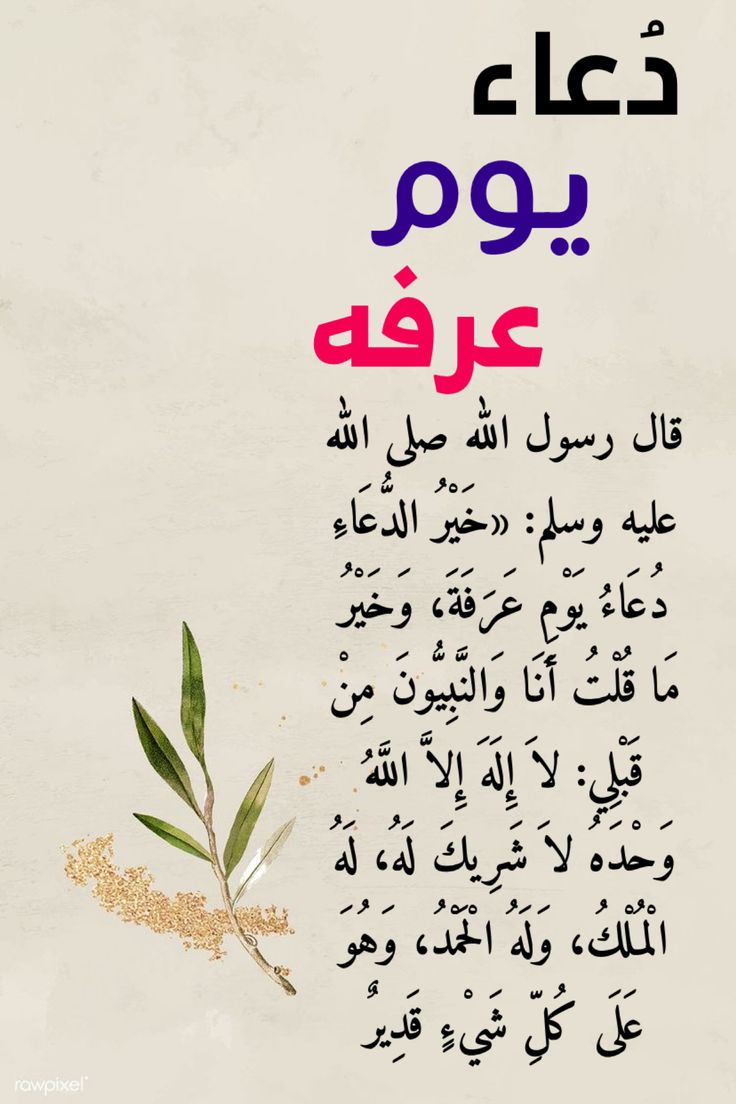 دُعاء
يوم
عرفه
قال رسول الله صلى الله
عليه وسلم: «خَيْرُ الدُّعَاءِ
دُعَاءُ يَوْمِ عَرَفَةَ، وَخَيْرُ
مَا قُلْتُ أَنَا وَالنَّبِيُّونَ مِنْ
قَبْلِي: لاَ إِلَهَ إِلاَّ اللَّهُ
وَحْدَهُ لاَ شَرِيكَ لَهُ، لَهُ
الْمُلْكُ، وَلَهُ الْحَمْدُ، وَهُوَ
عَلَى كُلِّ شَيْءٍ قَدِيرٌ
rawpixel